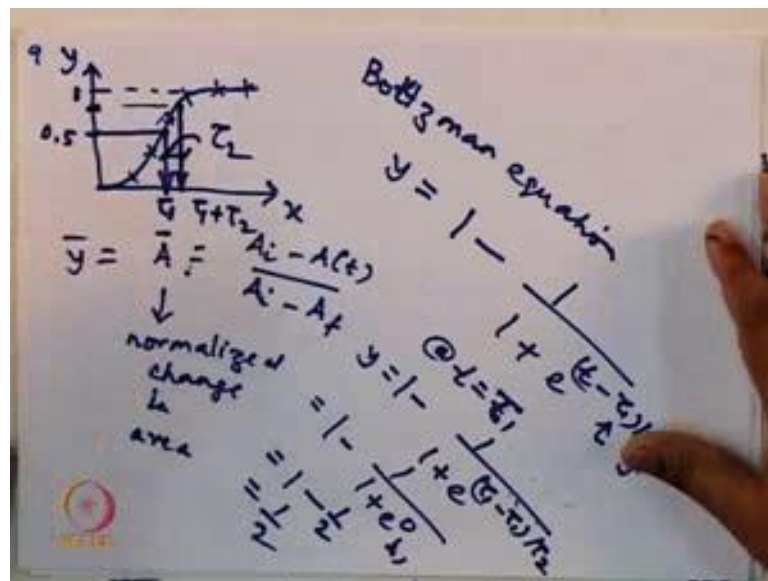 y
1
0.5
τ₂
τ₁ τ₁+τ₂ x
ȳ = Ā = (Ai - A(t)) / (Ai - Af)
normalized
change
in
area
Boltzman equation
y = 1 - 1 / (1 + e^(t-τ₁)/τ₂)
@ t = τ₁
y = 1 - 1 / (1 + e^(τ₁-τ₁)/τ₂)
= 1 - 1 / (1 + e⁰)
= 1 - 1/2
= 1/2